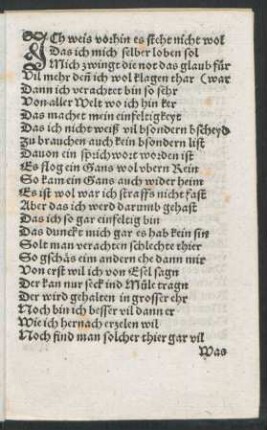 ICh weis vorhin es steht nicht wol
Das ich mich selber loben sol
Mich zwingt die not das glaub für
Vil mehr deñ ich wol klagen thar (war
Dann ich verachtet bin so sehr
Von aller Welt wo ich hin ker
Das machet mein einfeltigkeyt
Das ich nicht weiß vil bsondern bscheyd
Zu brauchen auch kein bsondern list
Dauon ein sprichwort worden ist
Es flog ein Gans wol vbern Rein
So kam ein Gans auch wider heim
Es ist wol war ich straffs nicht fast
Aber das ich werd darumb gehast
Das ich so gar einfeltig bin
Das dunckt mich gar es hab kein sin
Solt man verachten schlechte thier
So gschäs eim andern ehe dann mir
Von erst wil ich von Esel sagn
Der kan nur seck ind Müle tragn
Der wird gehalten in grosser ehr
Noch bin ich besser vil dann er
Wie ich hernach erzelen wil
Noch find man solcher thier gar vil
Was